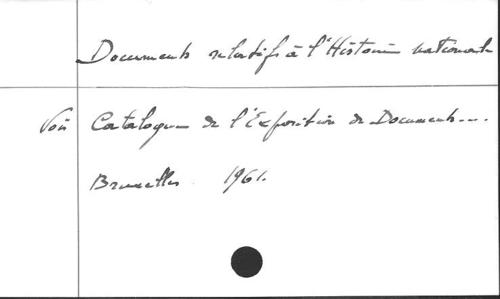 Documents relatifs à l'Histoire nationale
Voir Catalogue de l'Exposition de Documents...
Bruxelles 1961.